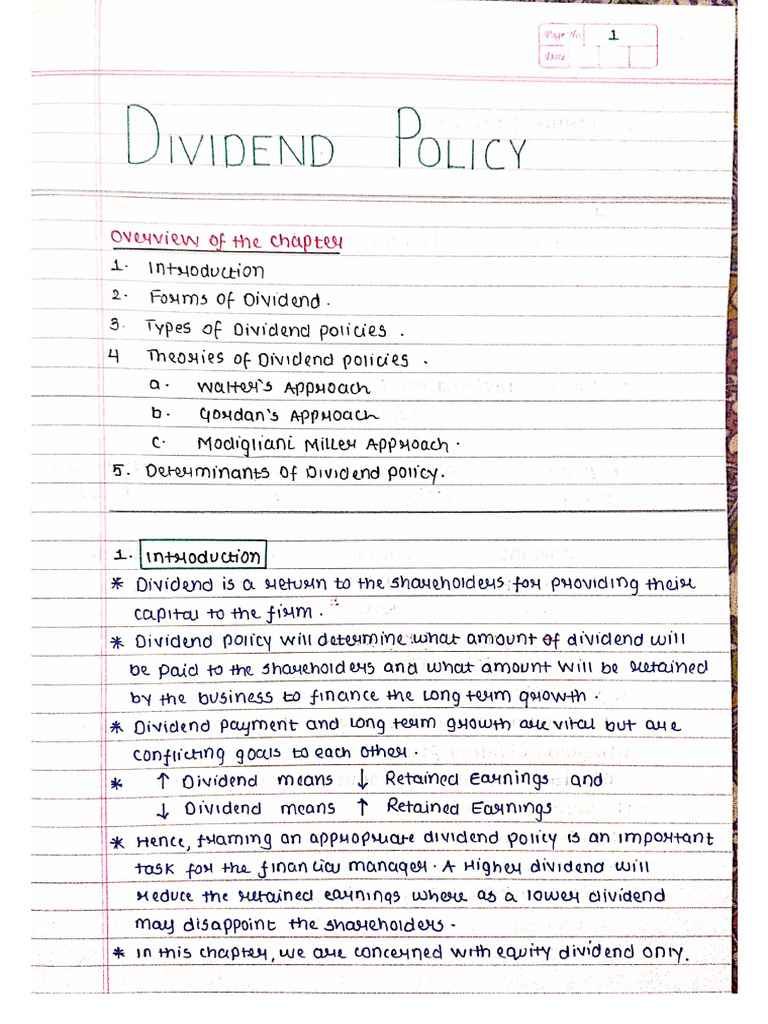 Page No. 1
Date
DIVIDEND POLICY
Overview of the Chapter
1. Introduction
2. Forms of Dividend.
3. Types of Dividend policies.
4 Theories of Dividend policies.
a. Walter's Approach
b. Gordan's Approach
c. Modigliani Miller Approach.
5. Determinants of Dividend policy.
1. Introduction
* Dividend is a return to the shareholders for providing their
capital to the firm.
* Dividend policy will determine what amount of dividend will
be paid to the shareholders and what amount will be retained
by the business to finance the long term growth.
* Dividend payment and long term growth are vital but are
conflicting goals to each other.
* ↑ Dividend means ↓ Retained Earnings and
↓ Dividend means ↑ Retained Earnings
* Hence, framing an appropriate dividend policy is an important
task for the financial manager. A Higher dividend will
reduce the retained earnings where as a lower dividend
may disappoint the shareholders.
* In this chapter, we are concerned with equity dividend only.